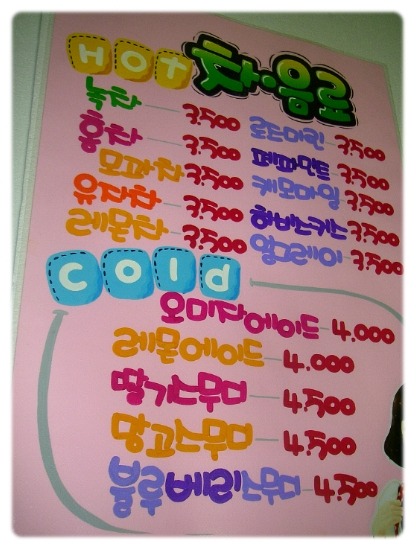 HOT 차·음료
녹차 3,500
홍차 3,500
모과차 3,500
유자차 3,500
레몬차 3,500
로즈마린 3,500
페파민트 3,500
케모마일 3,500
허비스커스 3,500
얼그레이 3,500
cold
오미자에이드 4,000
레몬에이드 4,000
딸기스무디 4,500
망고스무디 4,500
블루베리스무디 4,500